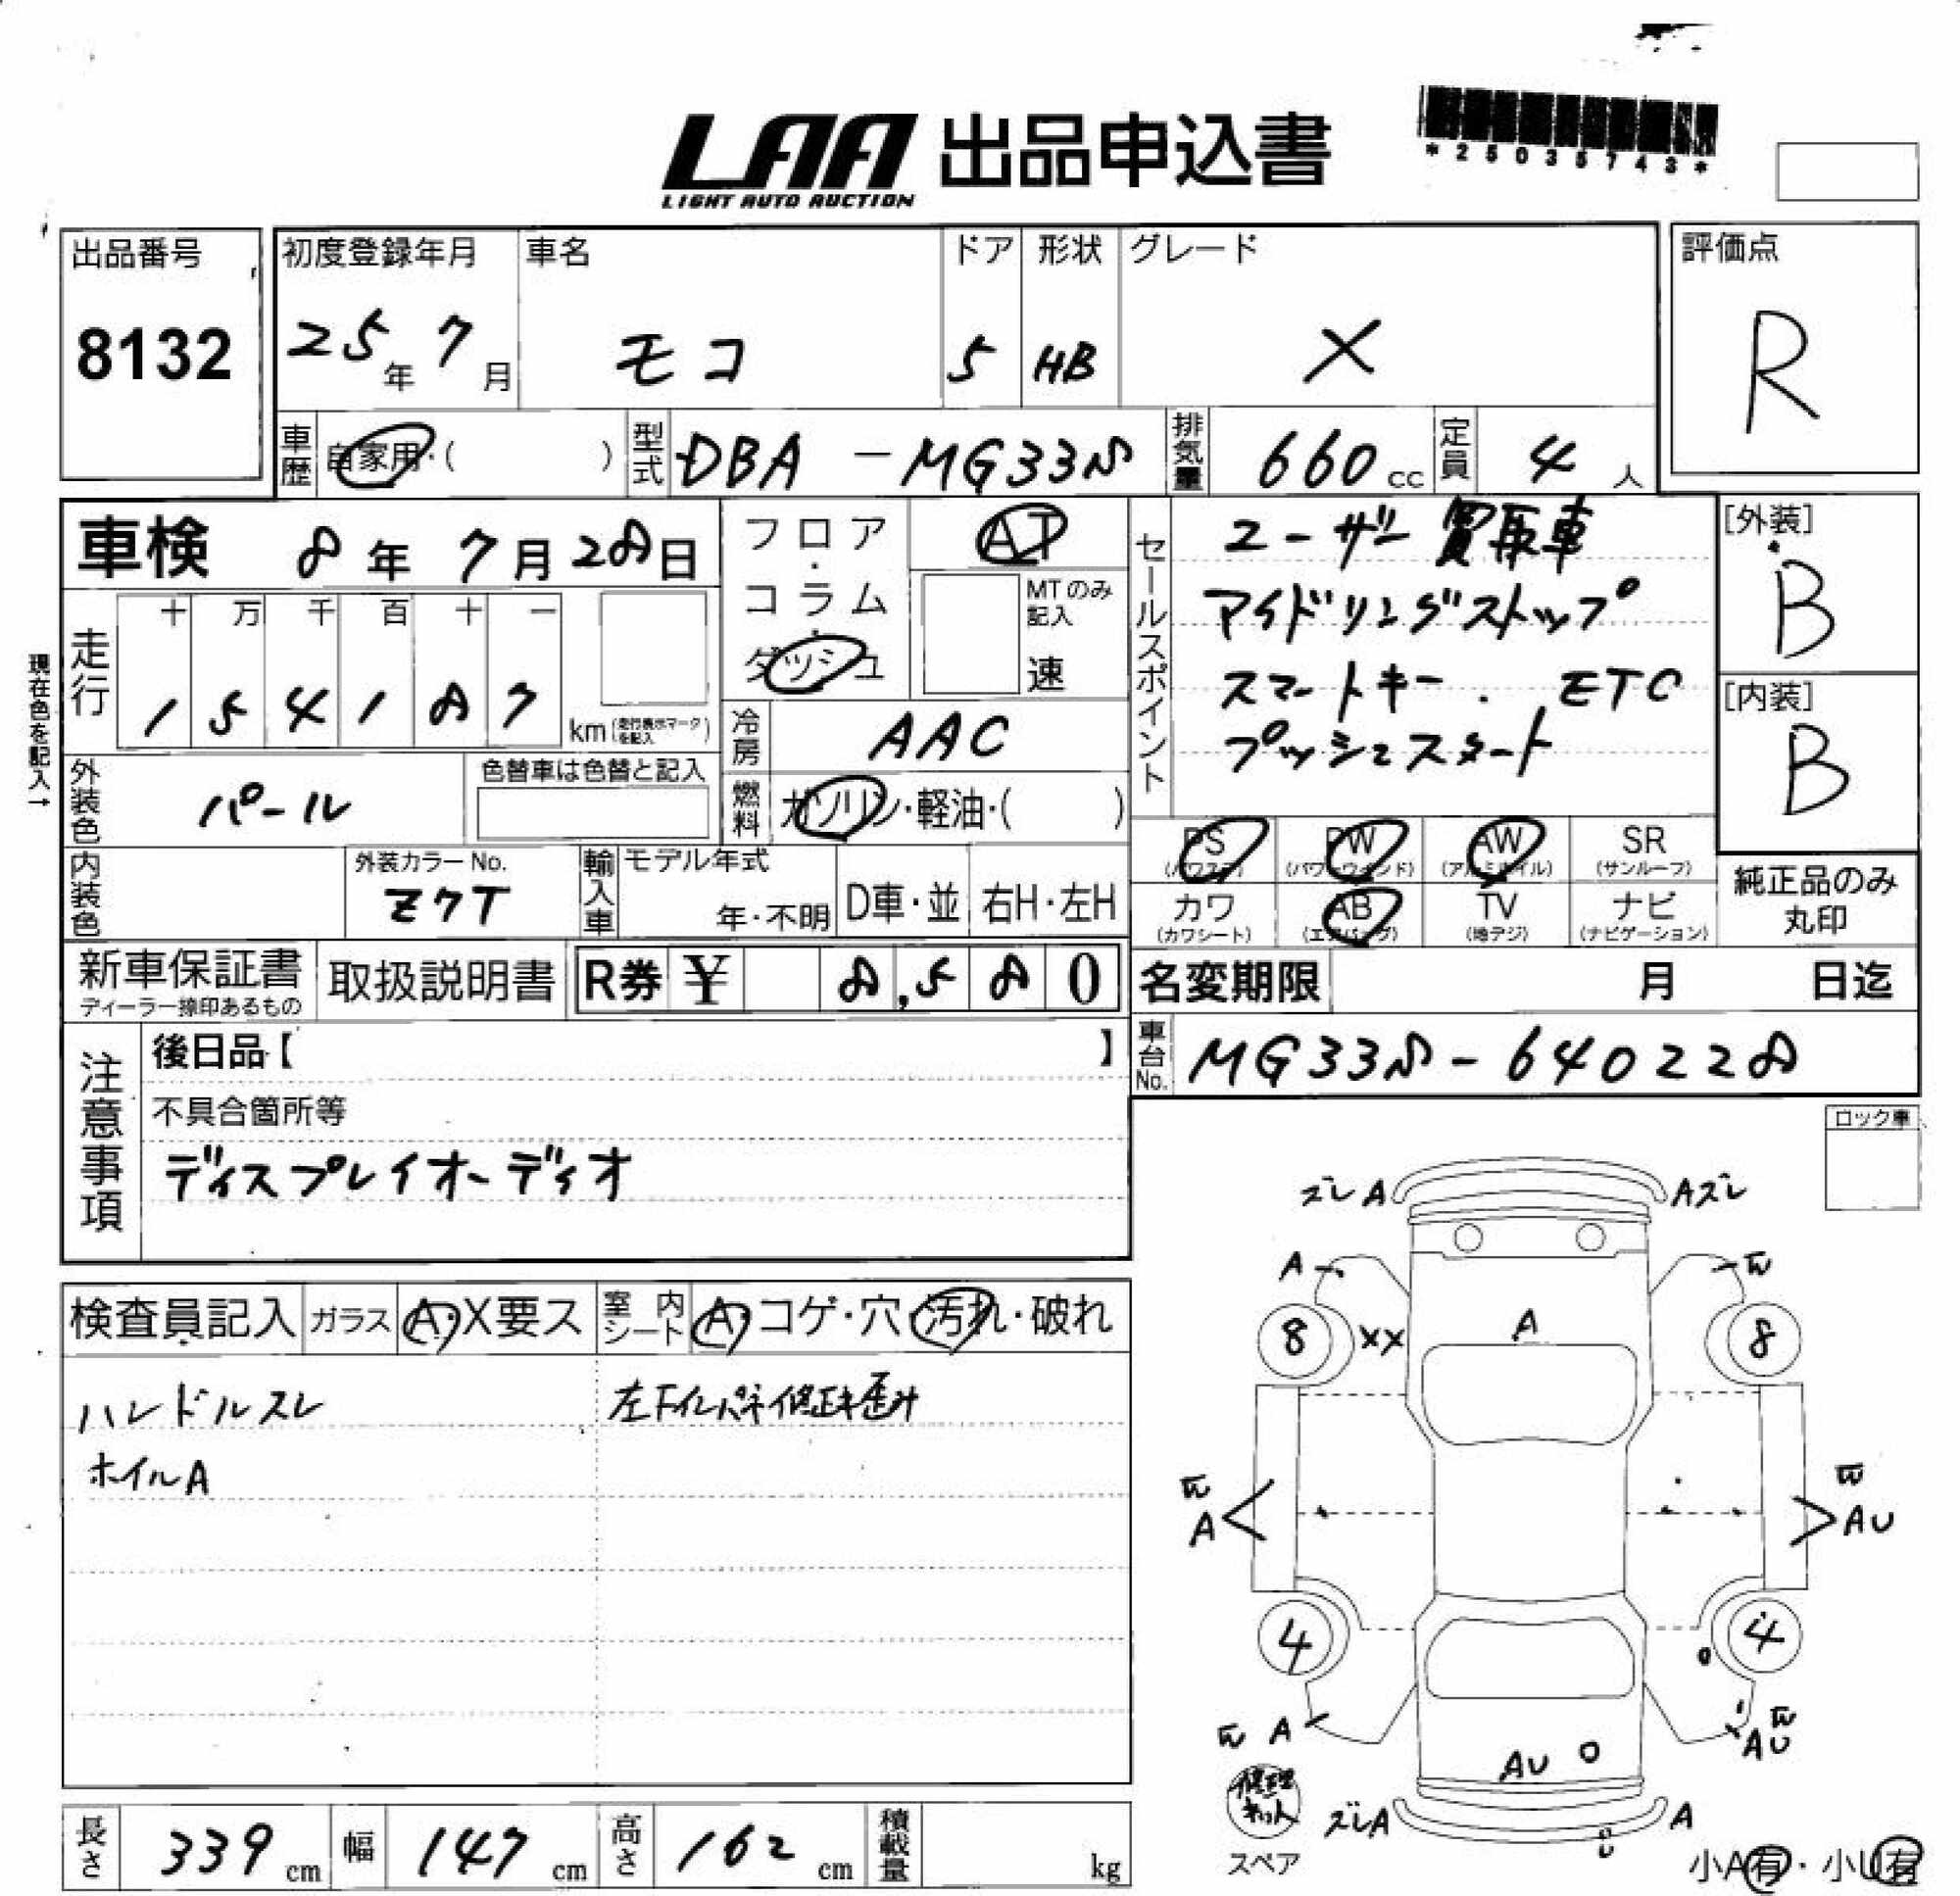 LAA 出品申込書
LIGHT AUTO AUCTION
*25035743*
出品番号
8132
初度登録年月
25年 7月
車名
モコ
ドア
5
形状
HB
グレード
X
評価点
R
車歴 自家用・( )
型式 DBA-MG33S
排気量 660 cc
定員 4 人
車検 8年 7月 28日
フロア・コラム・ダッシュ
AT
MTのみ記入
速
セールスポイント
ユーザー買取車
アイドリングストップ
スマートキー. ETC
プッシュスタート
[外装]
B
[内装]
B
現在色を記入→
走行
十 万 千 百 十 一
1 5 4 1 8 7
km (走行表示マークを記入)
冷房 AAC
外装色 パール
色替車は色替と記入
燃料 ガソリン・軽油・( )
PS (パワステ)
PW (パワーウインド)
AW (アルミホイル)
SR (サンルーフ)
カワ (カワシート)
AB (エアバッグ)
TV (地デジ)
ナビ (ナビゲーション)
純正品のみ丸印
内装色
外装カラーNo.
Z7T
輸入車
モデル年式
年・不明
D車・並
右H・左H
新車保証書
ディーラー捺印あるもの
取扱説明書
R券 ¥ 8,580
名変期限 月 日迄
車台No. MG33S-640228
注意事項
後日品【 】
不具合箇所等
ディスプレイオーディオ
ロック車
検査員記入
ガラス A・X要ス
室内シート A・コゲ・穴・汚れ・破れ
ハンドルスレ
ホイルA
左下インパネ修正キ歪ミ
ズレA
Aズレ
A
8
XX
A
8
A
AU
4
4
A
AU
AU
ズレA
A
スペア
小A有・小U有
長さ 339 cm
幅 147 cm
高さ 162 cm
積載量 kg